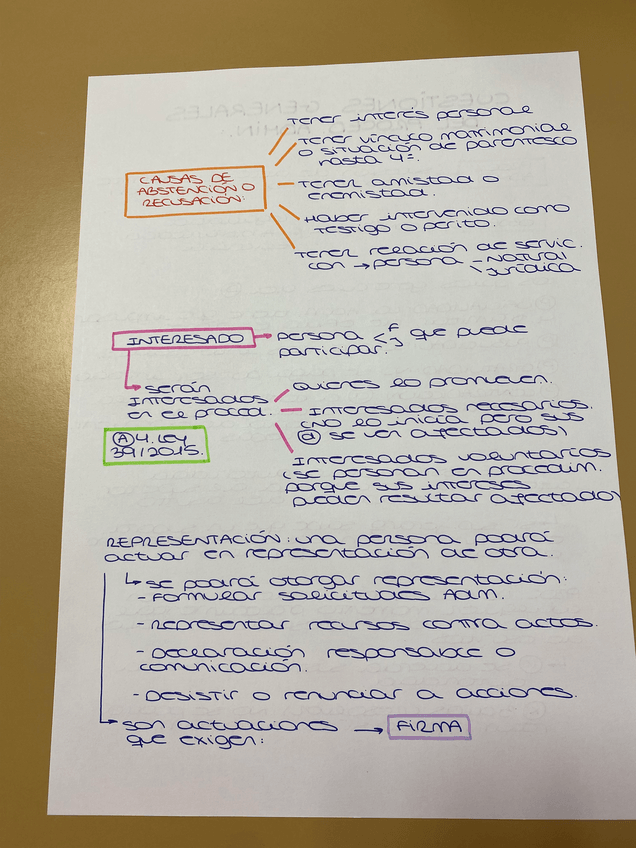 CAUSAS DE
ABSTENCIÓN O
RECUSACIÓN:
Tener interés personal
Tener vínculo matrimonial
o situación de parentesco
hasta 4º.
Tener amistad o
enemistad.
Haber intervenido como
testigo o perito.
Tener relación de servic.
con → persona - Natural
\ Jurídica
INTERESADO → persona < F J que puede
participar.
serán
interesados
en el proced.
Quienes lo promueven.
Interesados necesarios.
(No lo inicia pero sus
(d) se ven afectados)
Interesados voluntarios
(se personan en procedim.
porque sus intereses
pueden resultar afectado
(A) 4. Ley
39/2015.
REPRESENTACIÓN: una persona podrá
actuar en representación de otra.
↳ se podrá otorgar representación:
- Formular solicitudes Adm.
- Representar recursos contra actos.
- Declaración responsable o
comunicación.
- Desistir o renunciar a acciones.
son actuaciones → FIRMA
que exigen: